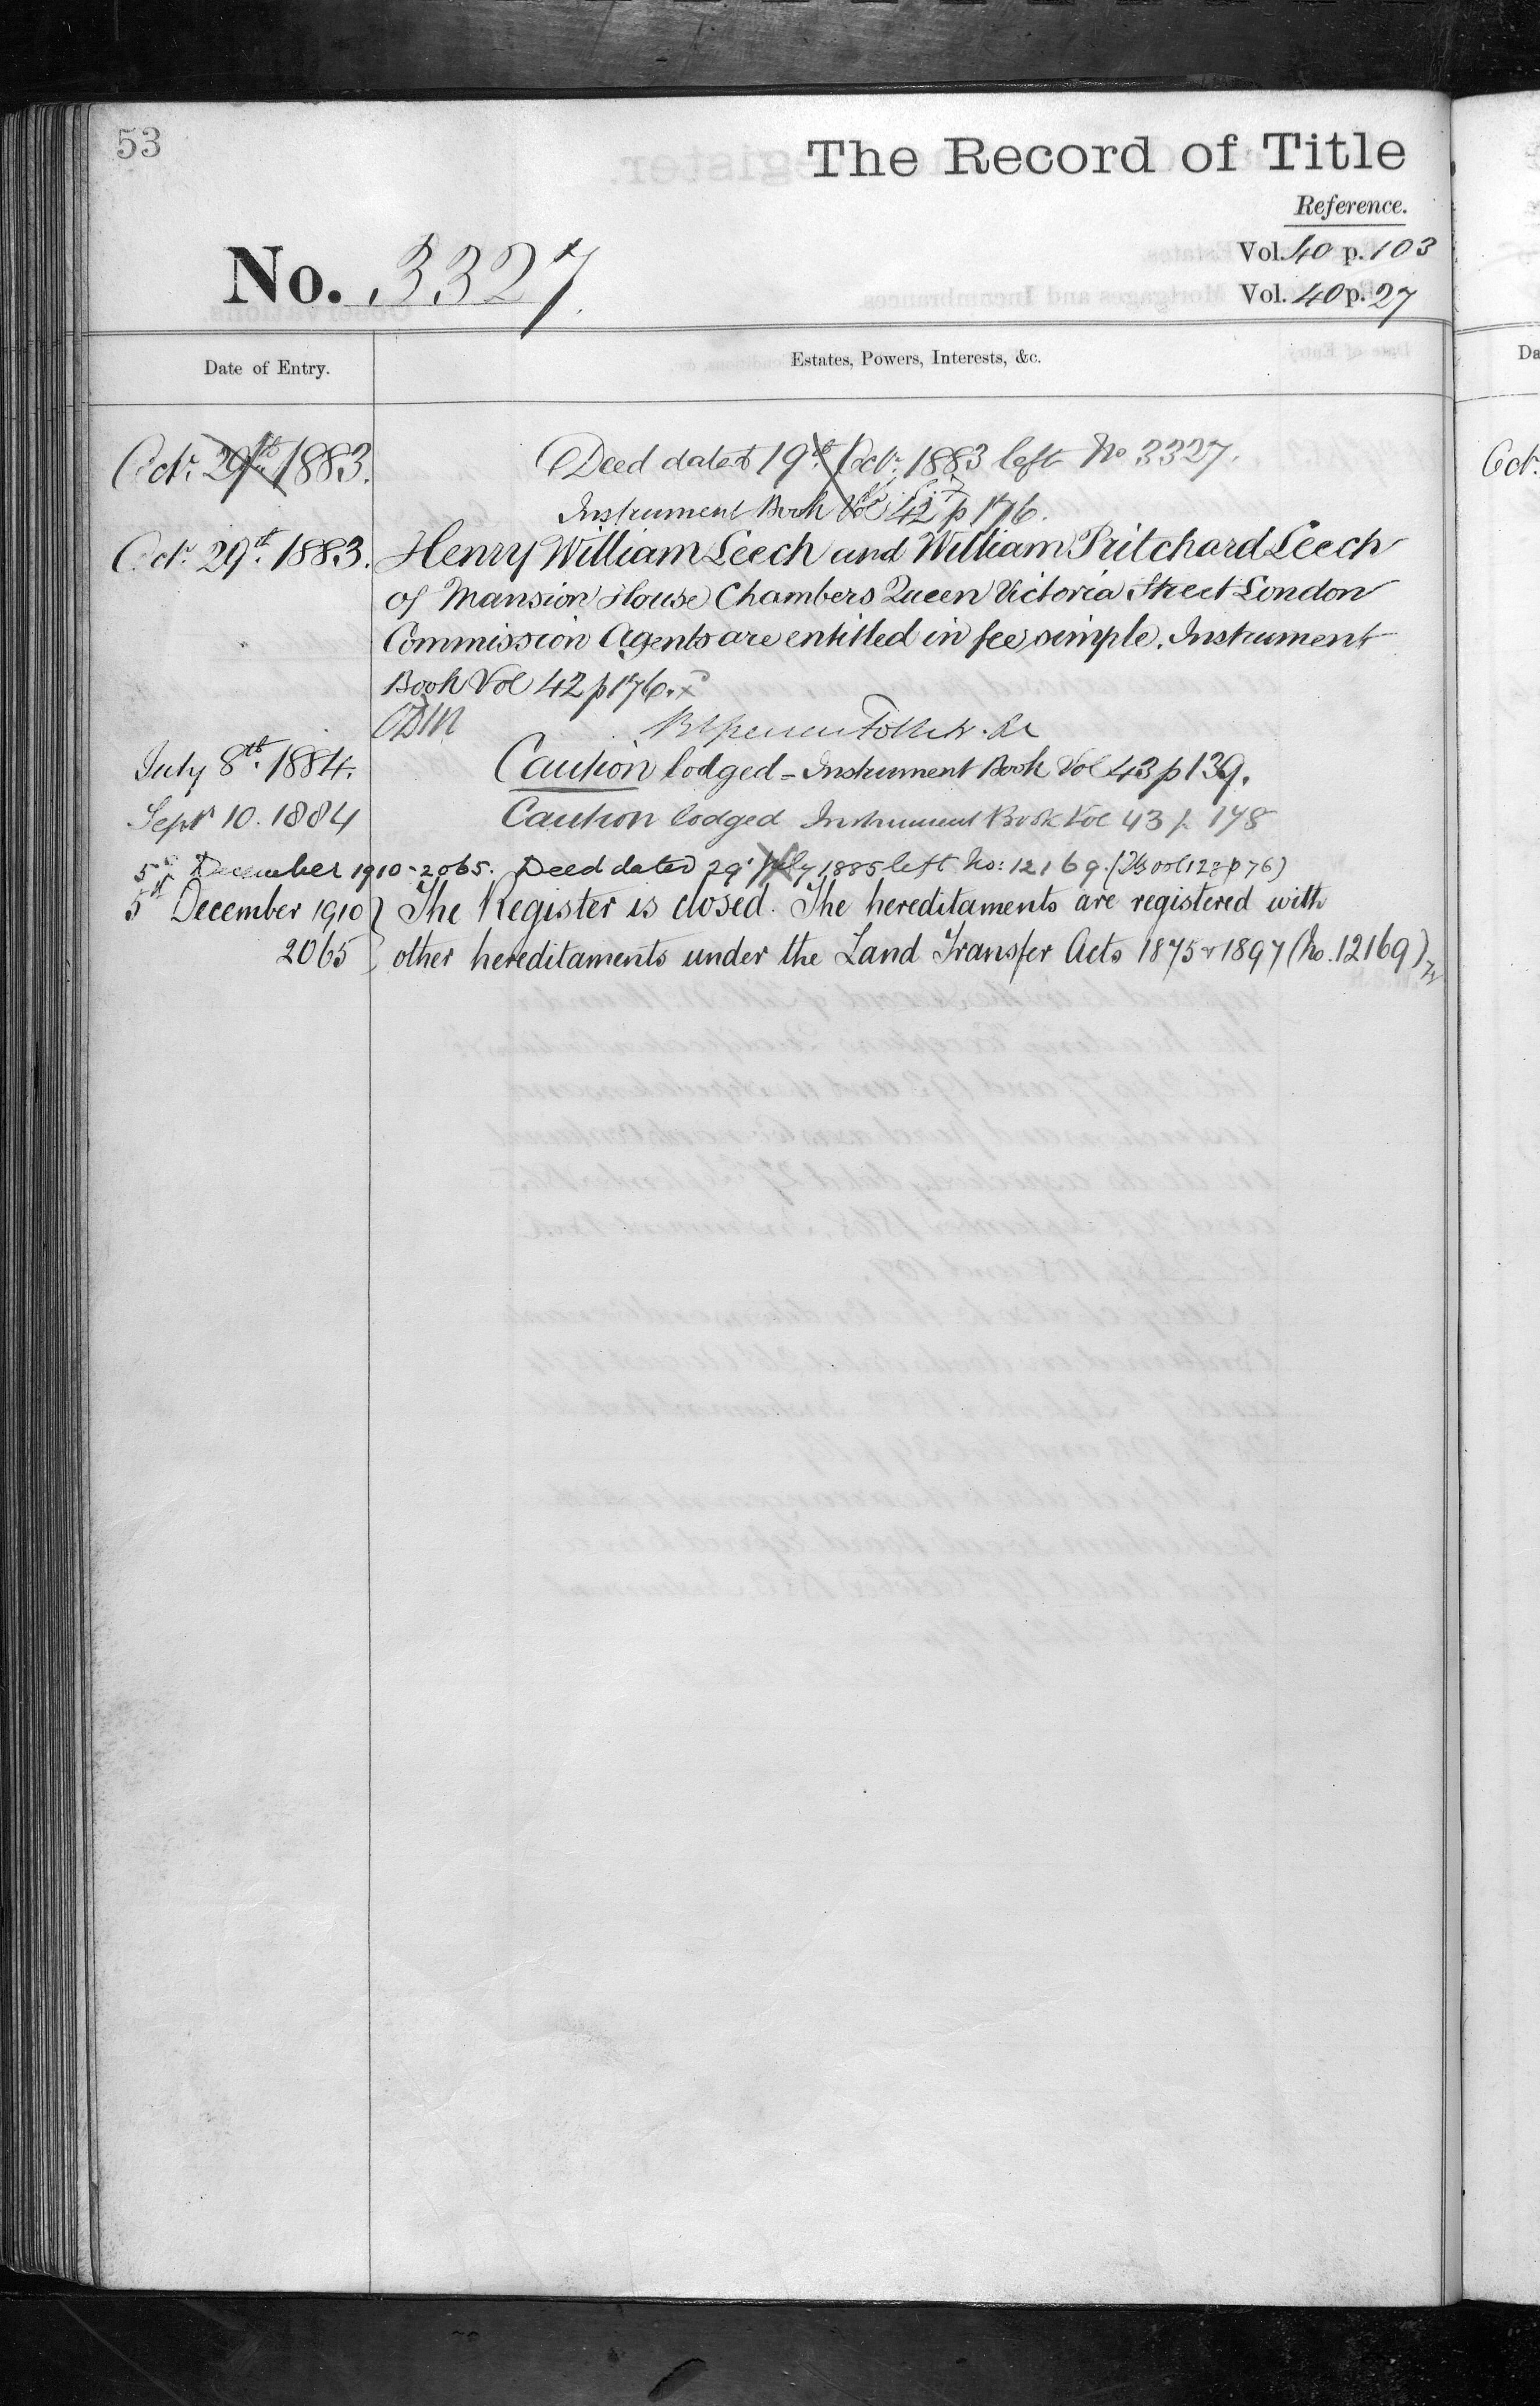 53
The Record of Title
Reference.
Vol. 40 p. 103
No. 3327.
Vol. 40 p. 27
Date of Entry.
Estates, Powers, Interests, &c.
Da
Octr. 29th 1883.
Deed dated 19th Octr. 1883 left No 3327.
Oct.
Instrument Book Vol 42 p 176.
Octr. 29th. 1883.
Henry William Leech and William Pritchard Leech
of Mansion House Chambers Queen Victoria Street London
Commission Agents are entitled in fee simple. Instrument
Book Vol 42 p 176.
July 8th. 1884.
Caution lodged - Instrument Book Vol 43 p 139.
Sept 10. 1884
Caution lodged Instrument Book Vol 43 p. 178
5th December 1910 - 2065.
Deed dated 29 July 1885 left No: 12169.
5th December 1910
2065
The Register is closed. The hereditaments are registered with
other hereditaments under the Land Transfer Acts 1875 & 1897 (No. 12169)